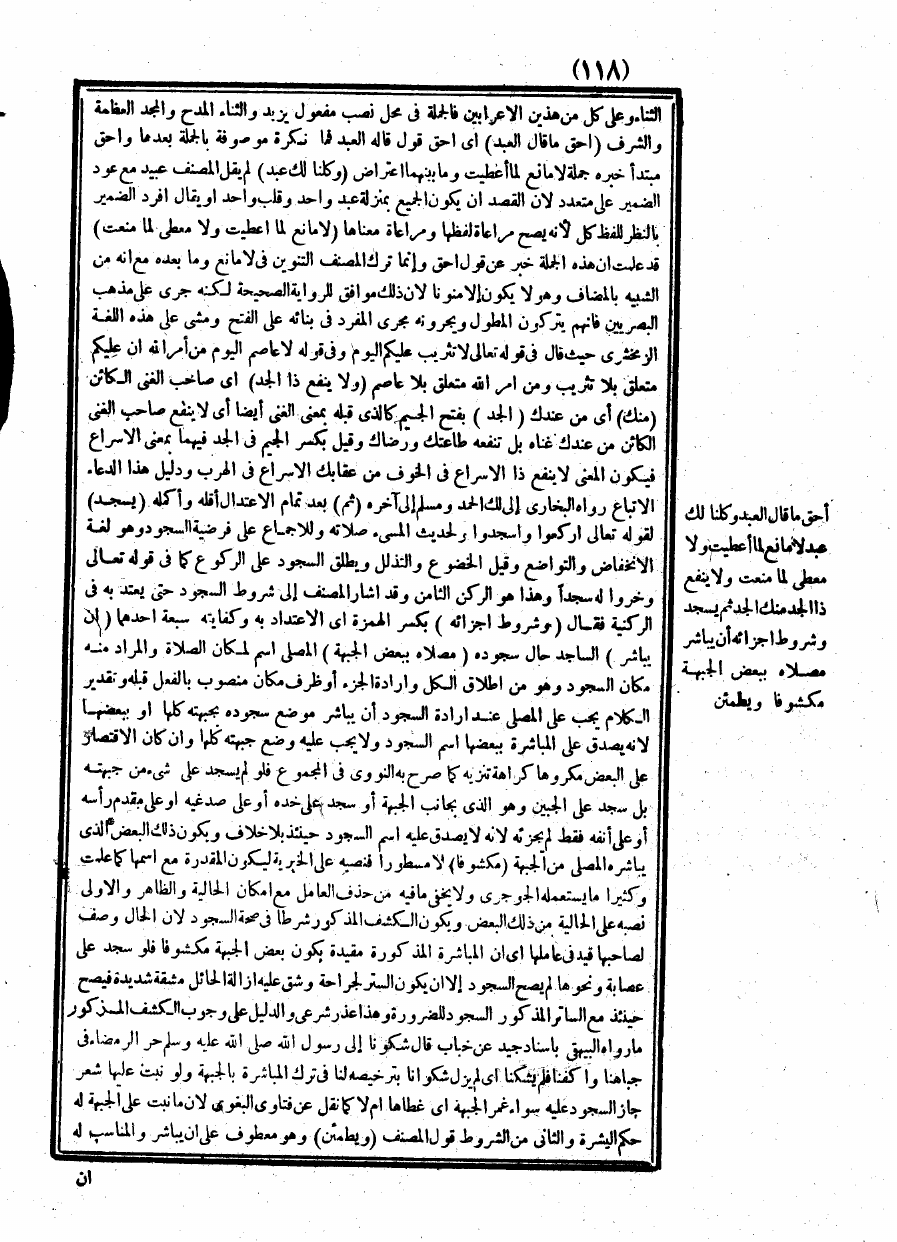 (١١٨)
الثناء وعلى كل من هذين الاعرابين فالجملة فى محل نصب مفعول يزيد والثناء المدح والمجد العظمة
والشرف (احق ماقال العبد) اى احق قول قاله العبد فما نكرة موصوفة بالجملة بعدها واحق
مبتدأ خبره جملة لامانع لما أعطيت وما بينهما اعتراض (وكلنا لك عبد) لم يقل المصنف عبيد مع عود
الضمير على متعدد لان القصد ان يكون الجميع بمنزلة عبد واحد وقلب واحد او يقال افرد الضمير
بالنظر للفظ كل لأنه يصح مراعاة لفظها ومراعاة معناها (لامانع لما اعطيت ولا معطى لما منعت)
قد علمت ان هذه الجملة خبر عن قول احق وإنما ترك المصنف التنوين فى لامانع وما بعده مع انه من
الشبيه بالمضاف وهو لا يكون إلا منونا لان ذلك موافق للرواية الصحيحة لكنه جرى على مذهب
البصريين فانهم يتركون المطول ويجرونه مجرى المفرد فى بنائه على الفتح ومشى على هذه اللغة
الزمخشرى حيث قال فى قوله تعالى لاتثريب عليكم اليوم وفى قوله لاعاصم اليوم من أمر الله ان عليكم
متعلق بلا تثريب ومن امر الله متعلق بلا عاصم (ولا ينفع ذا الجد) اى صاحب الغنى الكائن
(منك) أى من عندك (الجد) بفتح الجيم كالذى قبله بمعنى الغنى أيضا أى لاينفع صاحب الغنى
الكائن من عندك غناه بل تنفعه طاعتك ورضاك وقيل بكسر الجيم فى الجد فيهما بمعنى الاسراع
فيكون المعنى لاينفع ذا الاسراع فى الخوف من عقابك الاسراع فى الهرب ودليل هذا الدعاء
الاتباع رواه البخارى إلى لك الحمد ومسلم إلى آخره (ثم) بعد تمام الاعتدال أقله وأكمله (يسجد)
لقوله تعالى اركعوا واسجدوا ولحديث المسىء صلاته وللاجماع على فرضية السجود وهو لغة
الانخفاض والتواضع وقيل الخضوع والتذلل ويطلق السجود على الركوع كما فى قوله تعالى
وخروا له سجداً وهذا هو الركن الثامن وقد اشار المصنف إلى شروط السجود حتى يعتد به فى
الركنية فقال (وشروط اجزائه) بكسر الهمزة اى الاعتداد به وكفايته سبعة احدها (ان
يباشر) الساجد حال سجوده (مصلاه ببعض الجبهة) المصلى اسم لمكان الصلاة والمراد منه
مكان السجود وهو من اطلاق الكل وارادة الجزء أو ظرف مكان منصوب بالفعل قبله وتقدير
الكلام يجب على المصلى عند ارادة السجود أن يباشر موضع سجوده بجبهته كلها او ببعضها
لانه يصدق على المباشرة ببعضها اسم السجود ولا يجب عليه وضع جبهته كلها وان كان الاقتصار
على البعض مكروها كراهة تنزيه كما صرح به النووى فى المجموع فلو لم يسجد على شىء من جبهته
بل سجد على الجبين وهو الذى بجانب الجبهة أو سجد على خده أو على صدغيه او على مقدم رأسه
أو على أنفه فقط لم يجزئه لانه لا يصدق عليه اسم السجود حينئذ بلاخلاف ويكون ذلك البعض الذى
يباشره المصلى من الجبهة (مكشوفا) لا مستورا فنصبه على الخبرية ليكون المقدرة مع اسمها كما علمت
وكثيرا ما يستعمله الجوجرى ولا يخفى مافيه من حذف العامل مع امكان الحالية والظاهر والاولى
نصبه على الحالية من ذلك البعض ويكون الكشف المذكور شرطا فى صحة السجود لان الحال وصف
لصاحبها قيد فى عاملها اى ان المباشرة المذكورة مقيدة بكون بعض الجبهة مكشوفا فلو سجد على
عصابة ونحوها لم يصح السجود إلا ان يكون الستر لجراحة وشق عليه ازالة الحائل مشقة شديدة فيصح
حينئذ مع الساتر المذكور السجود للضرورة وهذا عذر شرعى والدليل على وجوب الكشف المذكور
مارواه البيهقى باسناد جيد عن خباب قال شكونا إلى رسول الله صلى الله عليه وسلم حر الرمضاء فى
جباهنا واكفنا فلم يشكنا اى لم يزل شكوانا بترخيصه لنا فى ترك المباشرة بالجبهة ولو نبت عليها شعر
جاز السجود عليه سواء غمر الجبهة اى غطاها ام لا كما نقل عن فتاوى البغوى لان مانبت على الجبهة له
حكم البشرة والثانى من الشروط قول المصنف (ويطمئن) وهو معطوف على ان يباشر والمناسب له
ان
أحق ماقال العبد وكلنا لك
عبد لامانع لما أعطيت ولا
معطى لما منعت ولا ينفع
ذا الجد منك الجد ثم يسجد
وشروط اجزائه أن يباشر
مصلاه ببعض الجبهة
مكشوفا ويطمئن